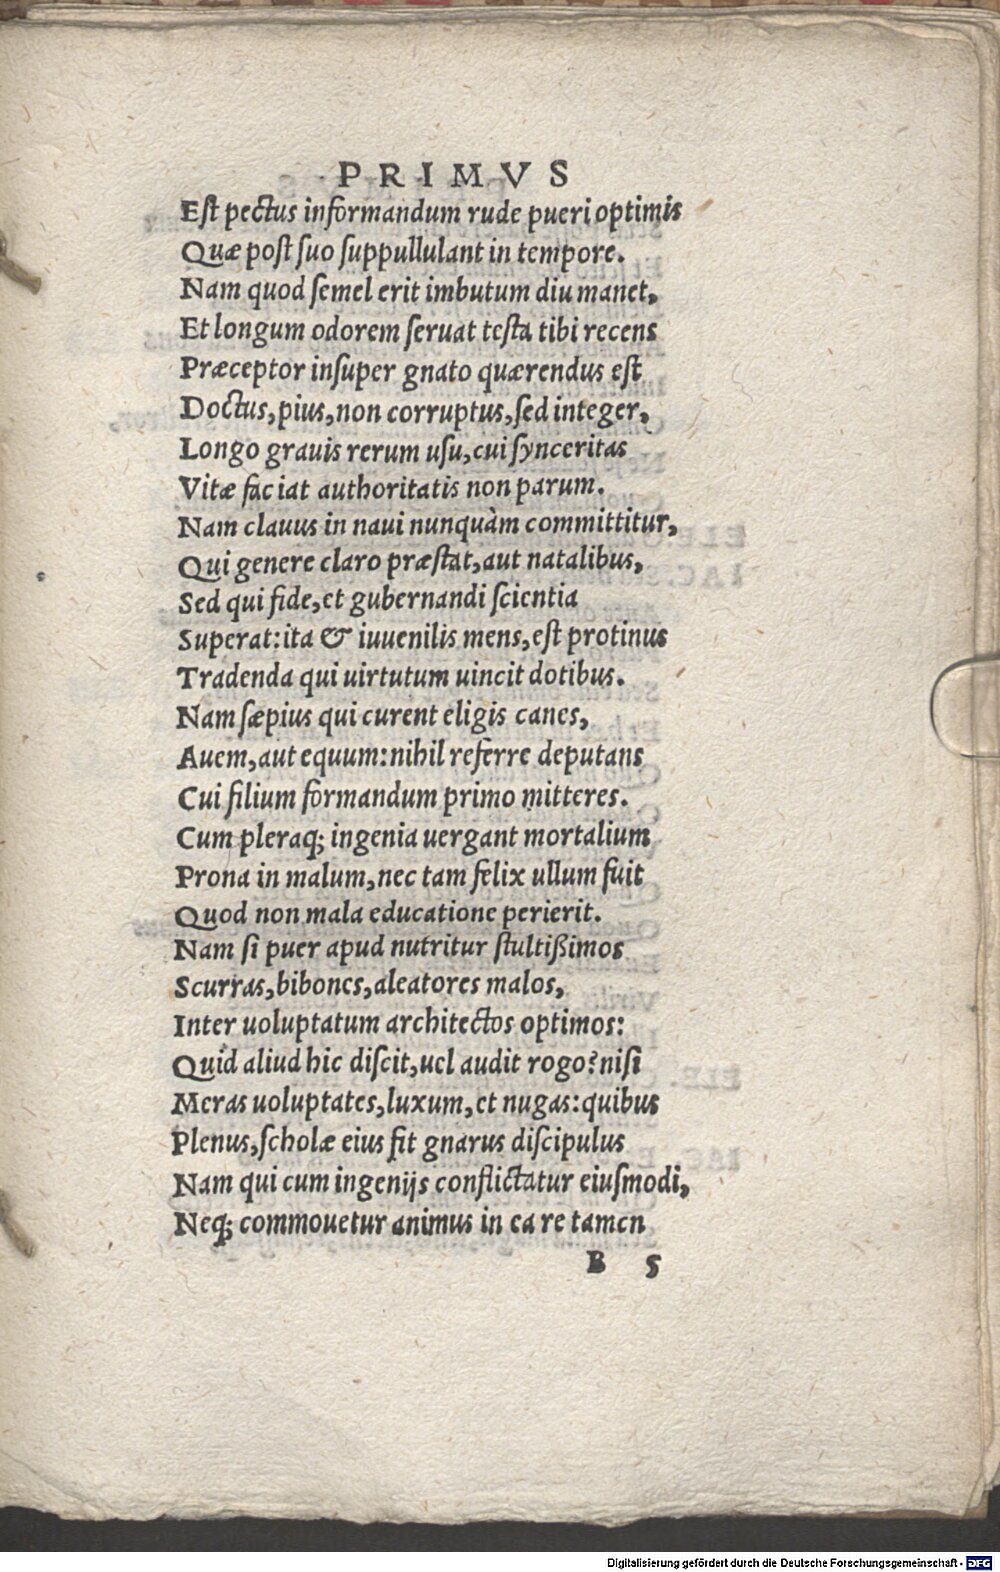 PRIMVS
Est pectus informandum rude pueri optimis
Quæ post suo suppullulant in tempore.
Nam quod semel erit imbutum diu manet,
Et longum odorem seruat testa tibi recens
Præceptor insuper gnato quærendus est
Doctus, pius, non corruptus, sed integer,
Longo grauis rerum usu, cui synceritas
Vitæ faciat authoritatis non parum.
Nam clauus in naui nunquàm committitur,
Qui genere claro præstat, aut natalibus,
Sed qui fide, et gubernandi scientia
Superat: ita & iuuenilis mens, est protinus
Tradenda qui uirtutum uincit dotibus.
Nam sæpius qui curent eligis canes,
Auem, aut equum: nihil referre deputans
Cui filium formandum primo mitteres.
Cum pleraq; ingenia uergant mortalium
Prona in malum, nec tam felix ullum fuit
Quod non mala educatione perierit.
Nam si puer apud nutritur stultißimos
Scurras, bibones, aleatores malos,
Inter uoluptatum architectos optimos:
Quid aliud hic discit, uel audit rogo? nisi
Meras uoluptates, luxum, et nugas: quibus
Plenus, scholæ eius fit gnarus discipulus
Nam qui cum ingenijs conflictatur eiusmodi,
Neq; commouetur animus in ea re tamen
B 5
Digitalisierung gefördert durch die Deutsche Forschungsgemeinschaft - DFG